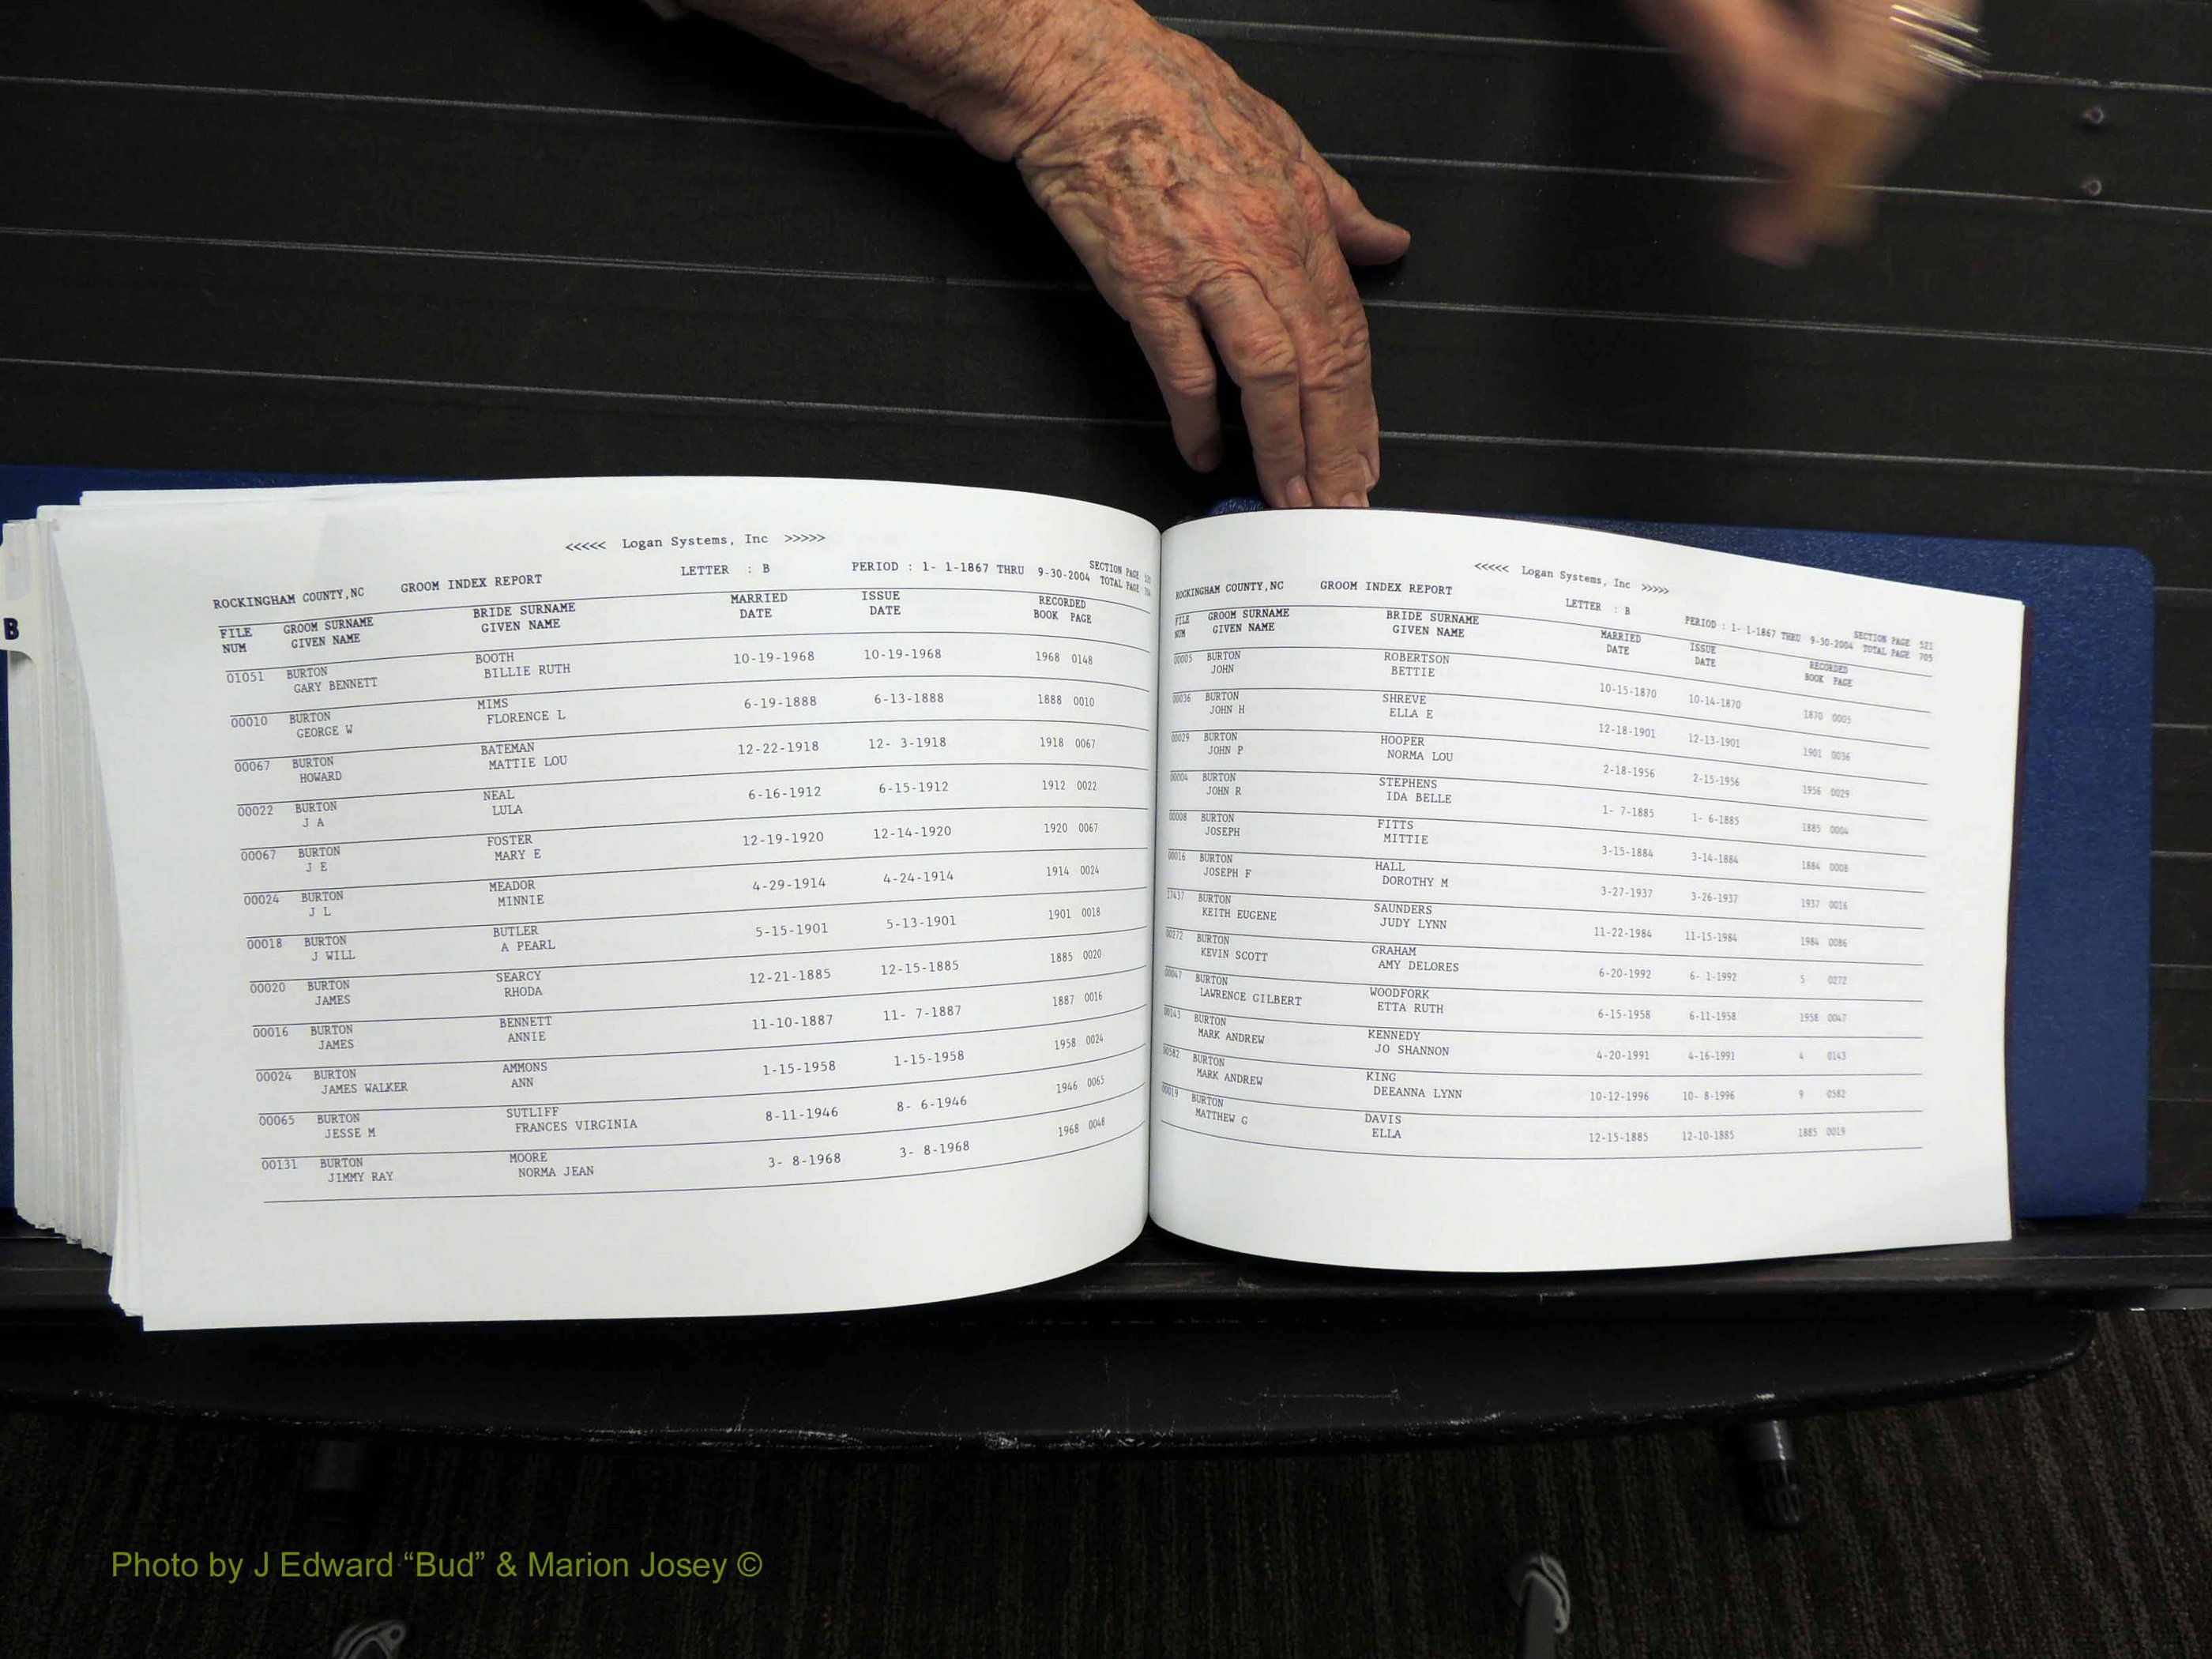 B
<<<<< Logan Systems, Inc >>>>>
ROCKINGHAM COUNTY,NC GROOM INDEX REPORT LETTER : B PERIOD : 1- 1-1867 THRU 9-30-2004 SECTION PAGE
TOTAL PAGE
FILE GROOM SURNAME BRIDE SURNAME MARRIED ISSUE RECORDED
NUM GIVEN NAME GIVEN NAME DATE DATE BOOK PAGE
01051 BURTON BOOTH 10-19-1968 10-19-1968 1968 0148
GARY BENNETT BILLIE RUTH
00010 BURTON MIMS 6-19-1888 6-13-1888 1888 0010
GEORGE W FLORENCE L
00067 BURTON BATEMAN 12-22-1918 12- 3-1918 1918 0067
HOWARD MATTIE LOU
00022 BURTON NEAL 6-16-1912 6-15-1912 1912 0022
J A LULA
00067 BURTON FOSTER 12-19-1920 12-14-1920 1920 0067
J E MARY E
00024 BURTON MEADOR 4-29-1914 4-24-1914 1914 0024
J L MINNIE
00018 BURTON BUTLER 5-15-1901 5-13-1901 1901 0018
J WILL A PEARL
00020 BURTON SEARCY 12-21-1885 12-15-1885 1885 0020
JAMES RHODA
00016 BURTON BENNETT 11-10-1887 11- 7-1887 1887 0016
JAMES ANNIE
00024 BURTON AMMONS 1-15-1958 1-15-1958 1958 0024
JAMES WALKER ANN
00065 BURTON SUTLIFF 8-11-1946 8- 6-1946 1946 0065
JESSE M FRANCES VIRGINIA
00131 BURTON MOORE 3- 8-1968 3- 8-1968 1968 0048
JIMMY RAY NORMA JEAN
<<<<< Logan Systems, Inc >>>>>
ROCKINGHAM COUNTY,NC GROOM INDEX REPORT LETTER : B PERIOD : 1- 1-1867 THRU 9-30-2004 SECTION PAGE 521
TOTAL PAGE 705
FILE GROOM SURNAME BRIDE SURNAME MARRIED ISSUE RECORDED
NUM GIVEN NAME GIVEN NAME DATE DATE BOOK PAGE
00005 BURTON ROBERTSON 10-15-1870 10-14-1870 1870 0005
JOHN BETTIE
00036 BURTON SHREVE 12-18-1901 12-13-1901 1901 0036
JOHN H ELLA E
00029 BURTON HOOPER 2-18-1956 2-15-1956 1956 0029
JOHN P NORMA LOU
00004 BURTON STEPHENS 1- 7-1885 1- 6-1885 1885 0004
JOHN R IDA BELLE
00008 BURTON FITTS 3-15-1884 3-14-1884 1884 0008
JOSEPH MITTIE
00016 BURTON HALL 3-27-1937 3-26-1937 1937 0016
JOSEPH F DOROTHY M
17437 BURTON SAUNDERS 11-22-1984 11-15-1984 1984 0086
KEITH EUGENE JUDY LYNN
00272 BURTON GRAHAM 6-20-1992 6- 1-1992 5 0272
KEVIN SCOTT AMY DELORES
00047 BURTON WOODFORK 6-15-1958 6-11-1958 1958 0047
LAWRENCE GILBERT ETTA RUTH
00143 BURTON KENNEDY 4-20-1991 4-16-1991 4 0143
MARK ANDREW JO SHANNON
00582 BURTON KING 10-12-1996 10- 8-1996 9 0582
MARK ANDREW DEEANNA LYNN
00019 BURTON DAVIS 12-15-1885 12-10-1885 1885 0019
MATTHEW G ELLA
Photo by J Edward “Bud” & Marion Josey ©